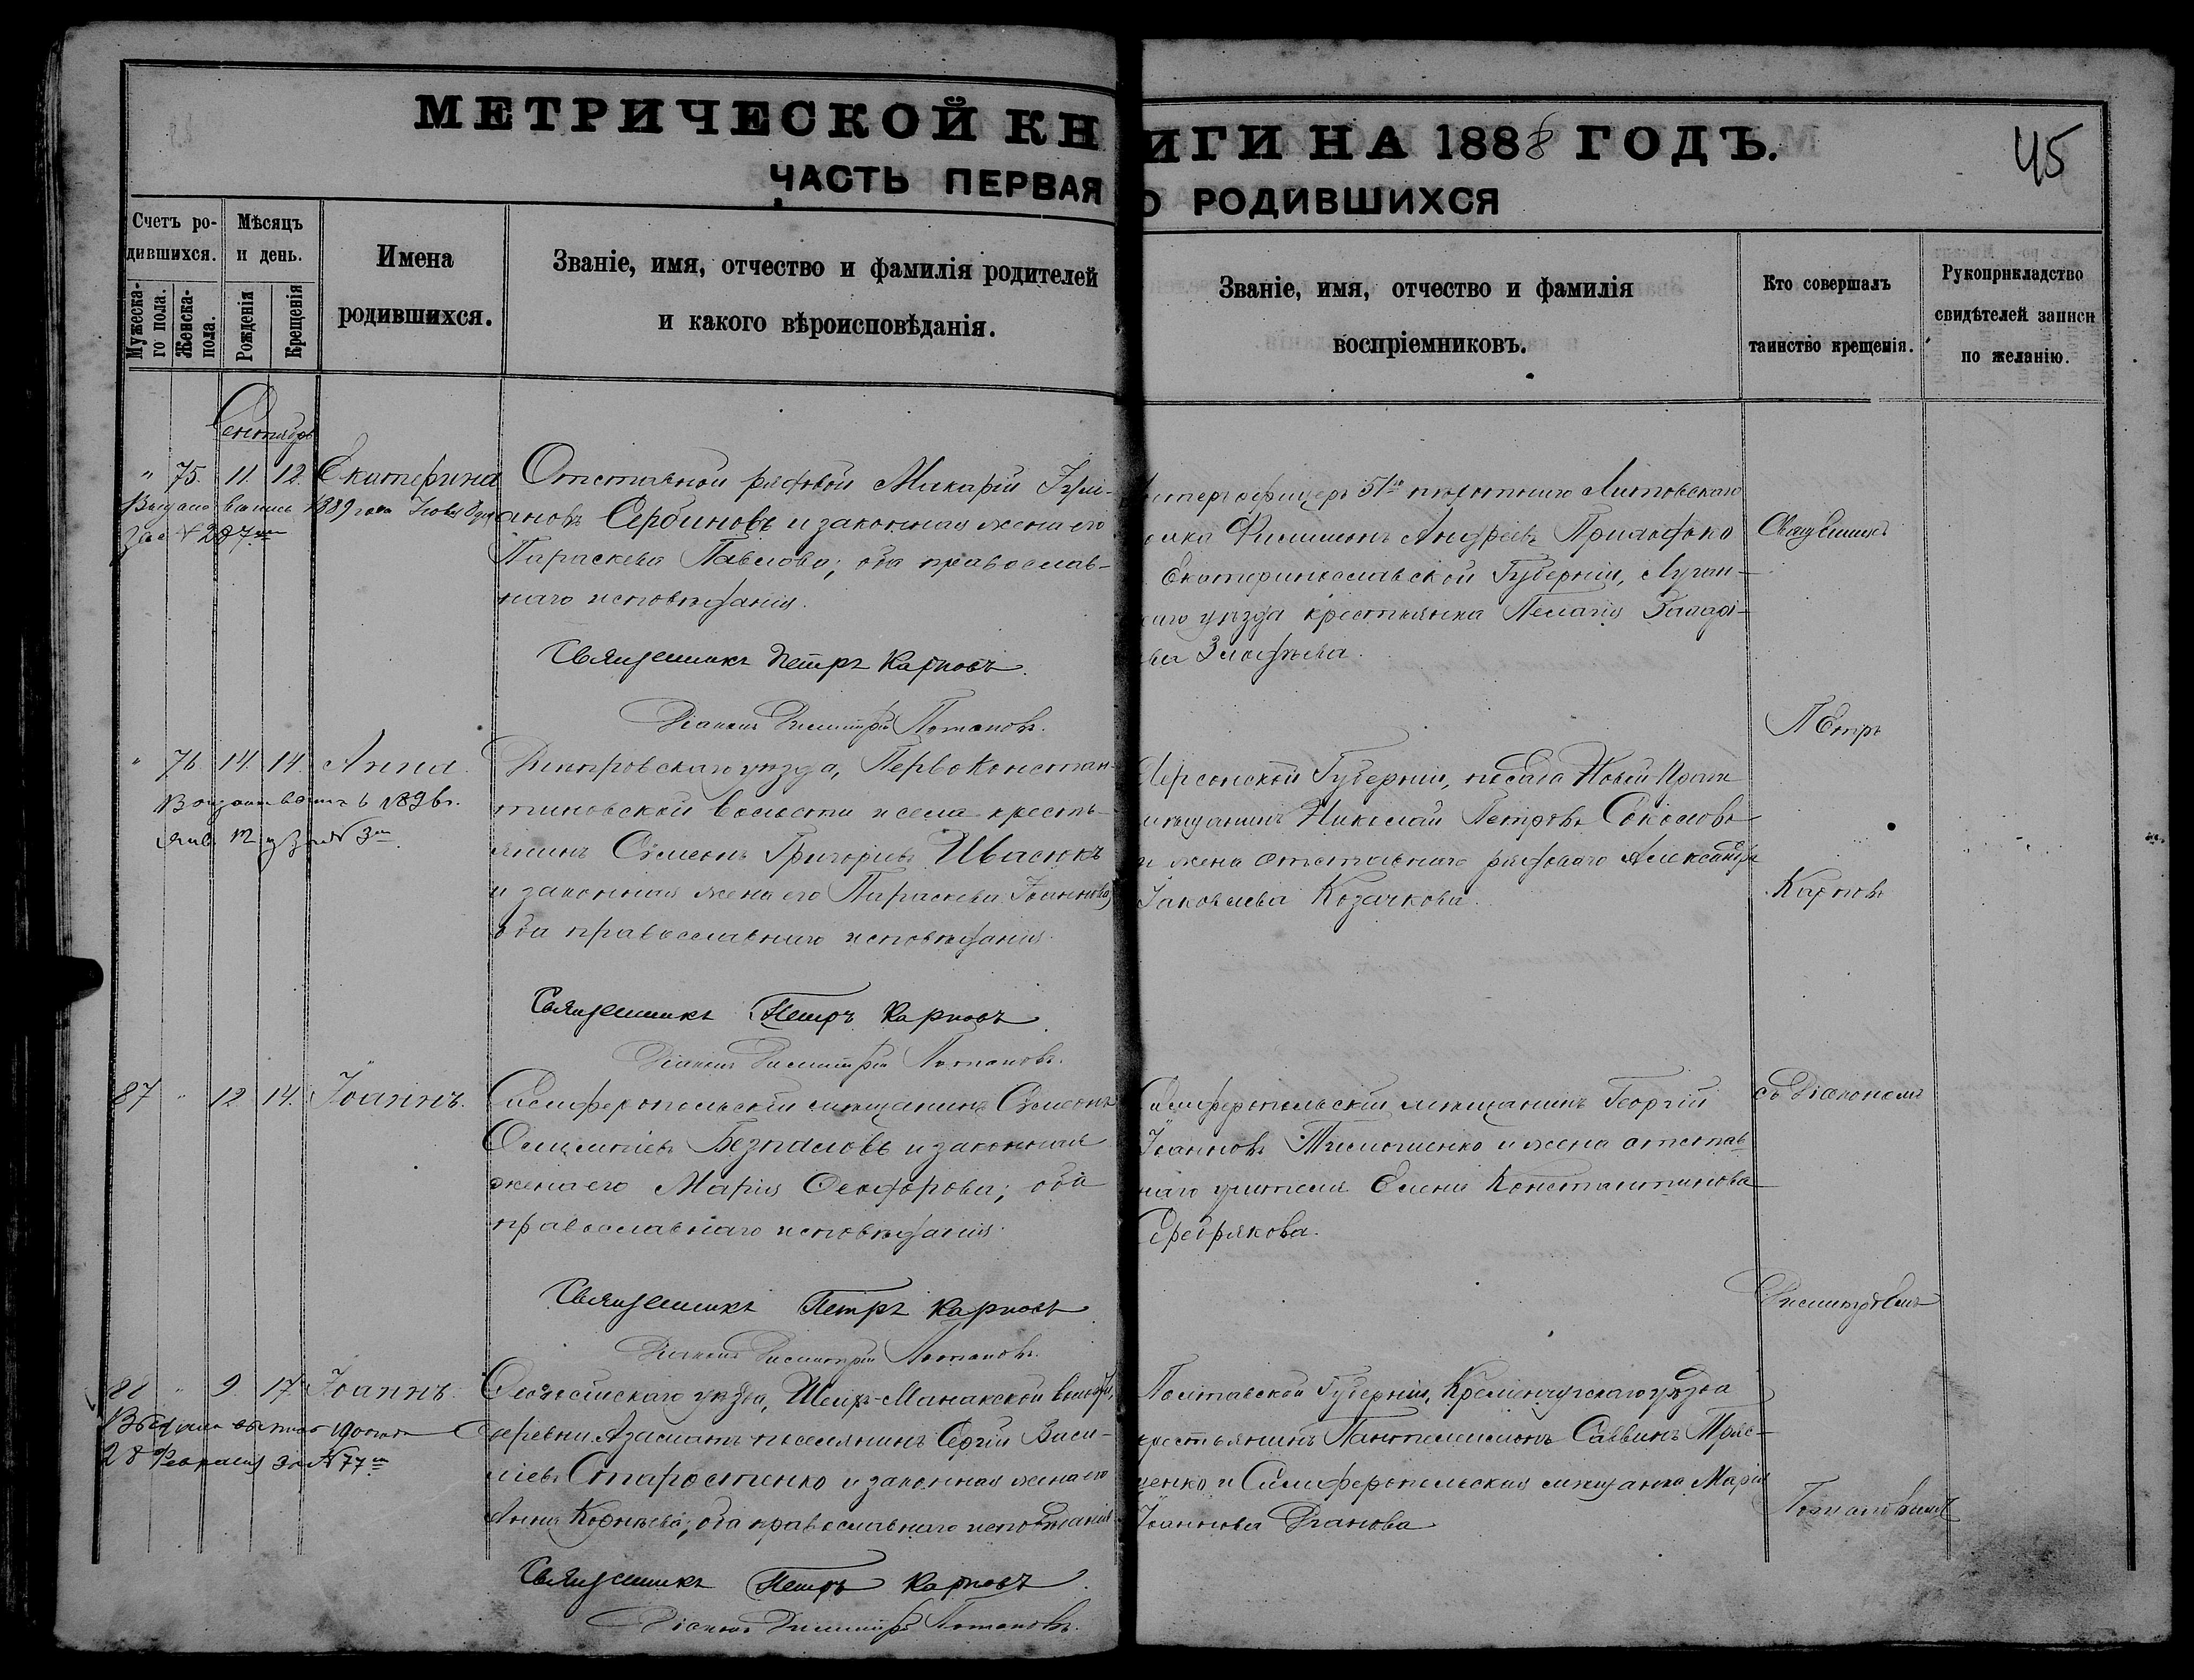 МЕТРИЧЕСКОЙ КНИГИ НА 1888 ГОДЪ.
45
ЧАСТЬ ПЕРВАЯ О РОДИВШИХСЯ
Счетъ ро-
дившихся.
Мужеска-
го пола.
Женска-
пола.
Мѣсяцъ
и день.
Рожденія
Крещенія
Имена
родившихся.
Званіе, имя, отчество и фамилія родителей
и какого вѣроисповѣданія.
Званіе, имя, отчество и фамилія
воспріемниковъ.
Кто совершалъ
таинство крещенія.
Рукоприкладство
свидѣтелей записи
по желанію.
Сентябрь
" 75. 11. 12. Екатерина
1889 года
Отставной рядовой Макарій
ановъ Сербиновъ и законная жена его
Параскева Павлова; оба православ-
наго исповѣданія.
Священникъ Петръ Карповъ.
Діаконъ Димитрій Потаповъ.
51го пѣхотнаго Литовскаго
полка Филимонъ Андреевъ
Екатеринославской Губерніи, Луган-
скаго уѣзда крестьянка Пелагія
" 76 14. 14. Анна.
Днѣпровскаго уѣзда, Первоконстан-
тиновской волости и села кресть-
янинъ Симеонъ Григорьевъ Ивасюкъ
и законная жена его Параскева Іоаннова,
оба православнаго исповѣданія.
Священникъ Петръ Карповъ
Діаконъ Димитрій Потаповъ.
Херсонской Губерніи, посада Новой Праги
мѣщанинъ Николай Петровъ Соколовъ
и жена отставнаго рядоваго Александра
Яковлева Козачкова.
87 " 12 14. Іоаннъ.
Симферопольскій мѣщанинъ Симеонъ
Безпаловъ и законная
жена его Марія Ѳеодорова; оба
православнаго исповѣданія.
Священникъ Петръ Карповъ
Діаконъ Димитрій Потаповъ.
Симферопольскій мѣщанинъ Георгій
Іоанновъ Тимошенко и жена отстав-
наго учителя Елена Константинова
Серебрякова.
88 " 9. 17 Іоаннъ.
28 Февраля за № 77
Ѳеодосійскаго уѣзда, Шейх-Манакской
деревни Азаматъ поселянинъ Сергій Васи-
ліевъ Старостенко и законная жена его
Анна Корнѣева; оба православнаго исповѣданія
Священникъ Петръ Карповъ.
Діаконъ Димитрій Потаповъ.
Полтавской Губерніи, Кременчугскаго уѣзда
крестьянинъ Пантелеимонъ Саввинъ
и Симферопольская мѣщанка Марія
Іоаннова
Священникъ
Петръ
Карповъ
съ Діакономъ
Димитріемъ
Потаповымъ